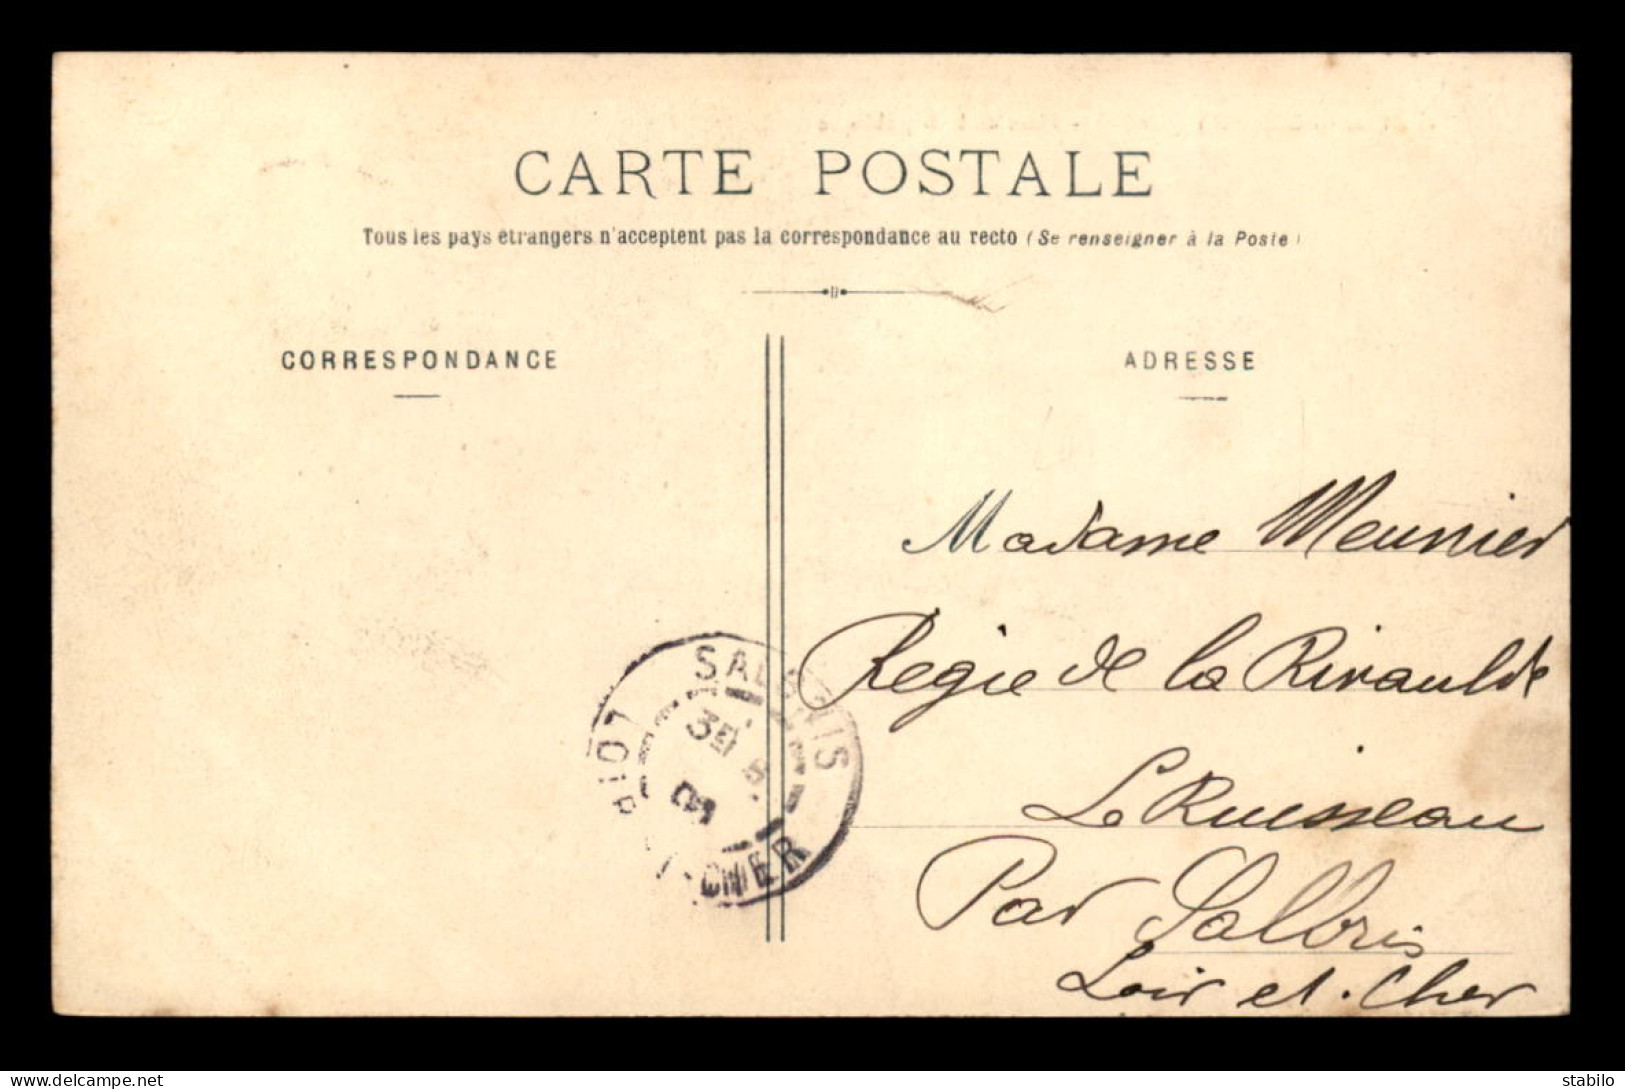 CARTE POSTALE
Tous les pays étrangers n'acceptent pas la correspondance au recto (Se renseigner à la Poste)
CORRESPONDANCE
ADRESSE
Madame Meunier
Régie de la Rivaulde
Le Ruisseau
Par Salbris
Loir et Cher
SALBRIS
LOIR
CHER
delcampe.net
stabilo